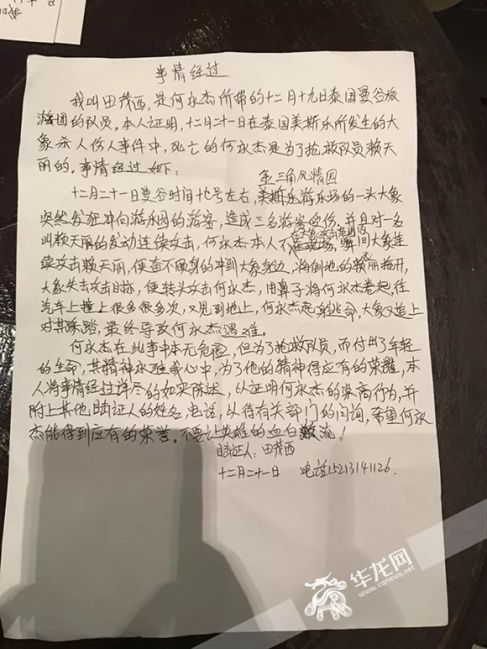 事情经过
我叫田茂西,是何永杰所带的十二月十九日泰国曼谷旅
游团的队员。本人证明,十二月二十一日在泰国美斯乐所发生的大
象杀人伤人事件中,死亡的何永杰是为了抢救队员赖天
丽的。事情经过如下:
金三角风情园
十二月二十一日曼谷时间 左右,美斯乐游乐场的一头大象
突然发狂冲向游乐园的游客,造成三名游客受伤,并且对一名
叫赖天丽的 发动连续攻击,何永杰本人不在现场,瞬间大象连
续攻击赖天丽,便奋不顾身的冲到大象身边,将倒地的赖丽拖开,
大象失去攻击目标,便转头攻击何永杰,用鼻子将何永杰卷起往
汽车上撞上很多很多次,又见到地上,何永杰起来逃命,大象又追上
对其踩踏,最终导致何永杰遇难。
何永杰在此事中本无危险,但为了抢救队员,而付出了年轻
的生命,其精神永驻我心中,为了他的精神得应有的荣耀,本
人将事情经过详尽的如实陈述,以证明何永杰的崇高行为,并
附上其他目击证人的姓名,电话,以待有关部门的问询,希望何永
杰能得到应有的荣誉。不要让英雄的血白流!
证人:田茂西
十二月二十一日 电话15213141126.
华龙网
www.cqnews.net